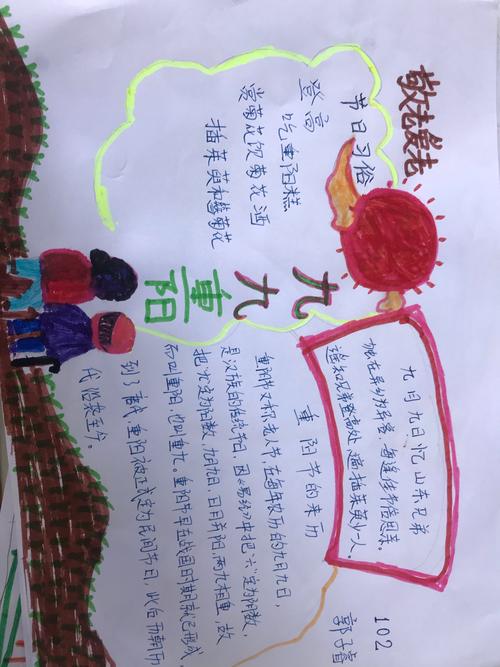 敬老爱老
节日习俗
登高
吃重阳糕
赏菊花饮菊花酒
插茱萸和簪菊花
九九
重阳
九月九日忆山东兄弟
独在异乡为异客，每逢佳节倍思亲。
遥知兄弟登高处，遍插茱萸少一人。
重阳节的来历
重阳节又称老人节，在每年农历的九月九日，
是汉族的传统节日，因《易经》中把"六"定为阴数，
把"九"定为阳数，九月九日，日月并阳，两九相重，故
而叫重阳，也叫重九。重阳节早在战国时期就已形成，
到了唐代，重阳被正式定为民间节日，此后历朝历
代沿袭至今。
102
郭子睿